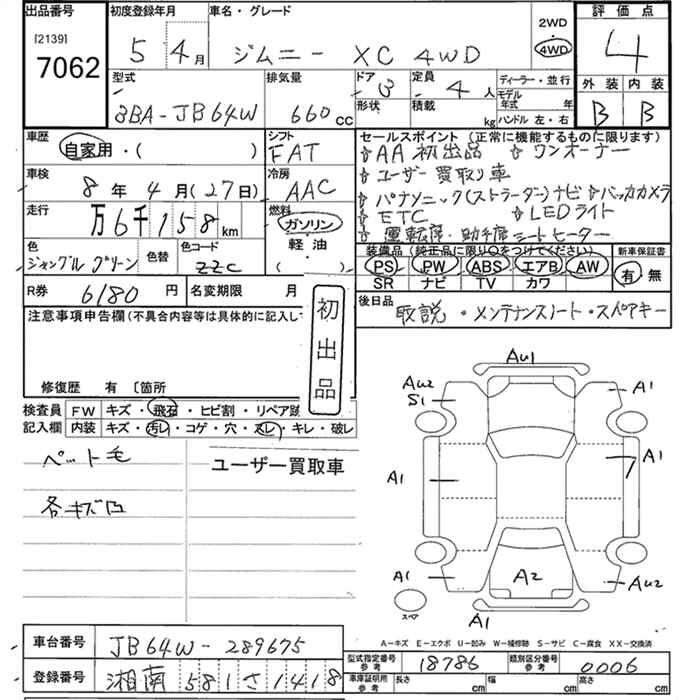 出品番号
[2139]
7062
初度登録年月
5 4月
車名・グレード
ジムニー XC 4WD
2WD
・
4WD
評価点
4
外装 内装
B B
型式
3BA-JB64W
排気量
660cc
ドア
3
形状
定員
4人
積載 kg
ディーラー・並行
モデル年式 年
ハンドル 左・右
車歴
自家用・( )
シフト
FAT
車検
8年 4月(27日)
冷房
AAC
走行
万6千158km
燃料
ガソリン・
軽油・
( )
色
ジャングル グリーン
色替
色コード
ZZC
セールスポイント (正常に機能するものに限ります)
☆AA初出品 ☆ワンオーナー
☆ユーザー買取り車
☆パナソニック(ストラーダー)ナビ ☆バックカメラ
☆ETC ☆LEDライト
☆運転席・助手席シートヒーター
装備品 (純正品に限り○をつけてください)
PS PW ABS エアB AW
SR ナビ TV カワ
新車保証書
有・無
R券
6180円
名変期限 月
初出品
後日品
取説・メンテナンスノート・スペアキー
注意事項申告欄(不具合内容等は具体的に記入し
修復歴 有 〔箇所
検査員記入欄
FW キズ・飛石・ヒビ割・リペア跡
内装 キズ・汚レ・コゲ・穴・スレ・キレ・破レ
ペット毛
ユーザー買取車
各キズ凹
AU1
AU2
S1
A1
A1
A1
A1
A2
AU2
A1
スペア
A-キズ E-エクボ U-凹み W-補修跡 S-サビ C-腐食 XX-交換済
車台番号
JB64W-289675
登録番号
湘南581さ1418
型式指定番号 参考
18786
類別区分番号 参考
0006
車庫証明用 参考
長さ cm
幅 cm
高さ cm